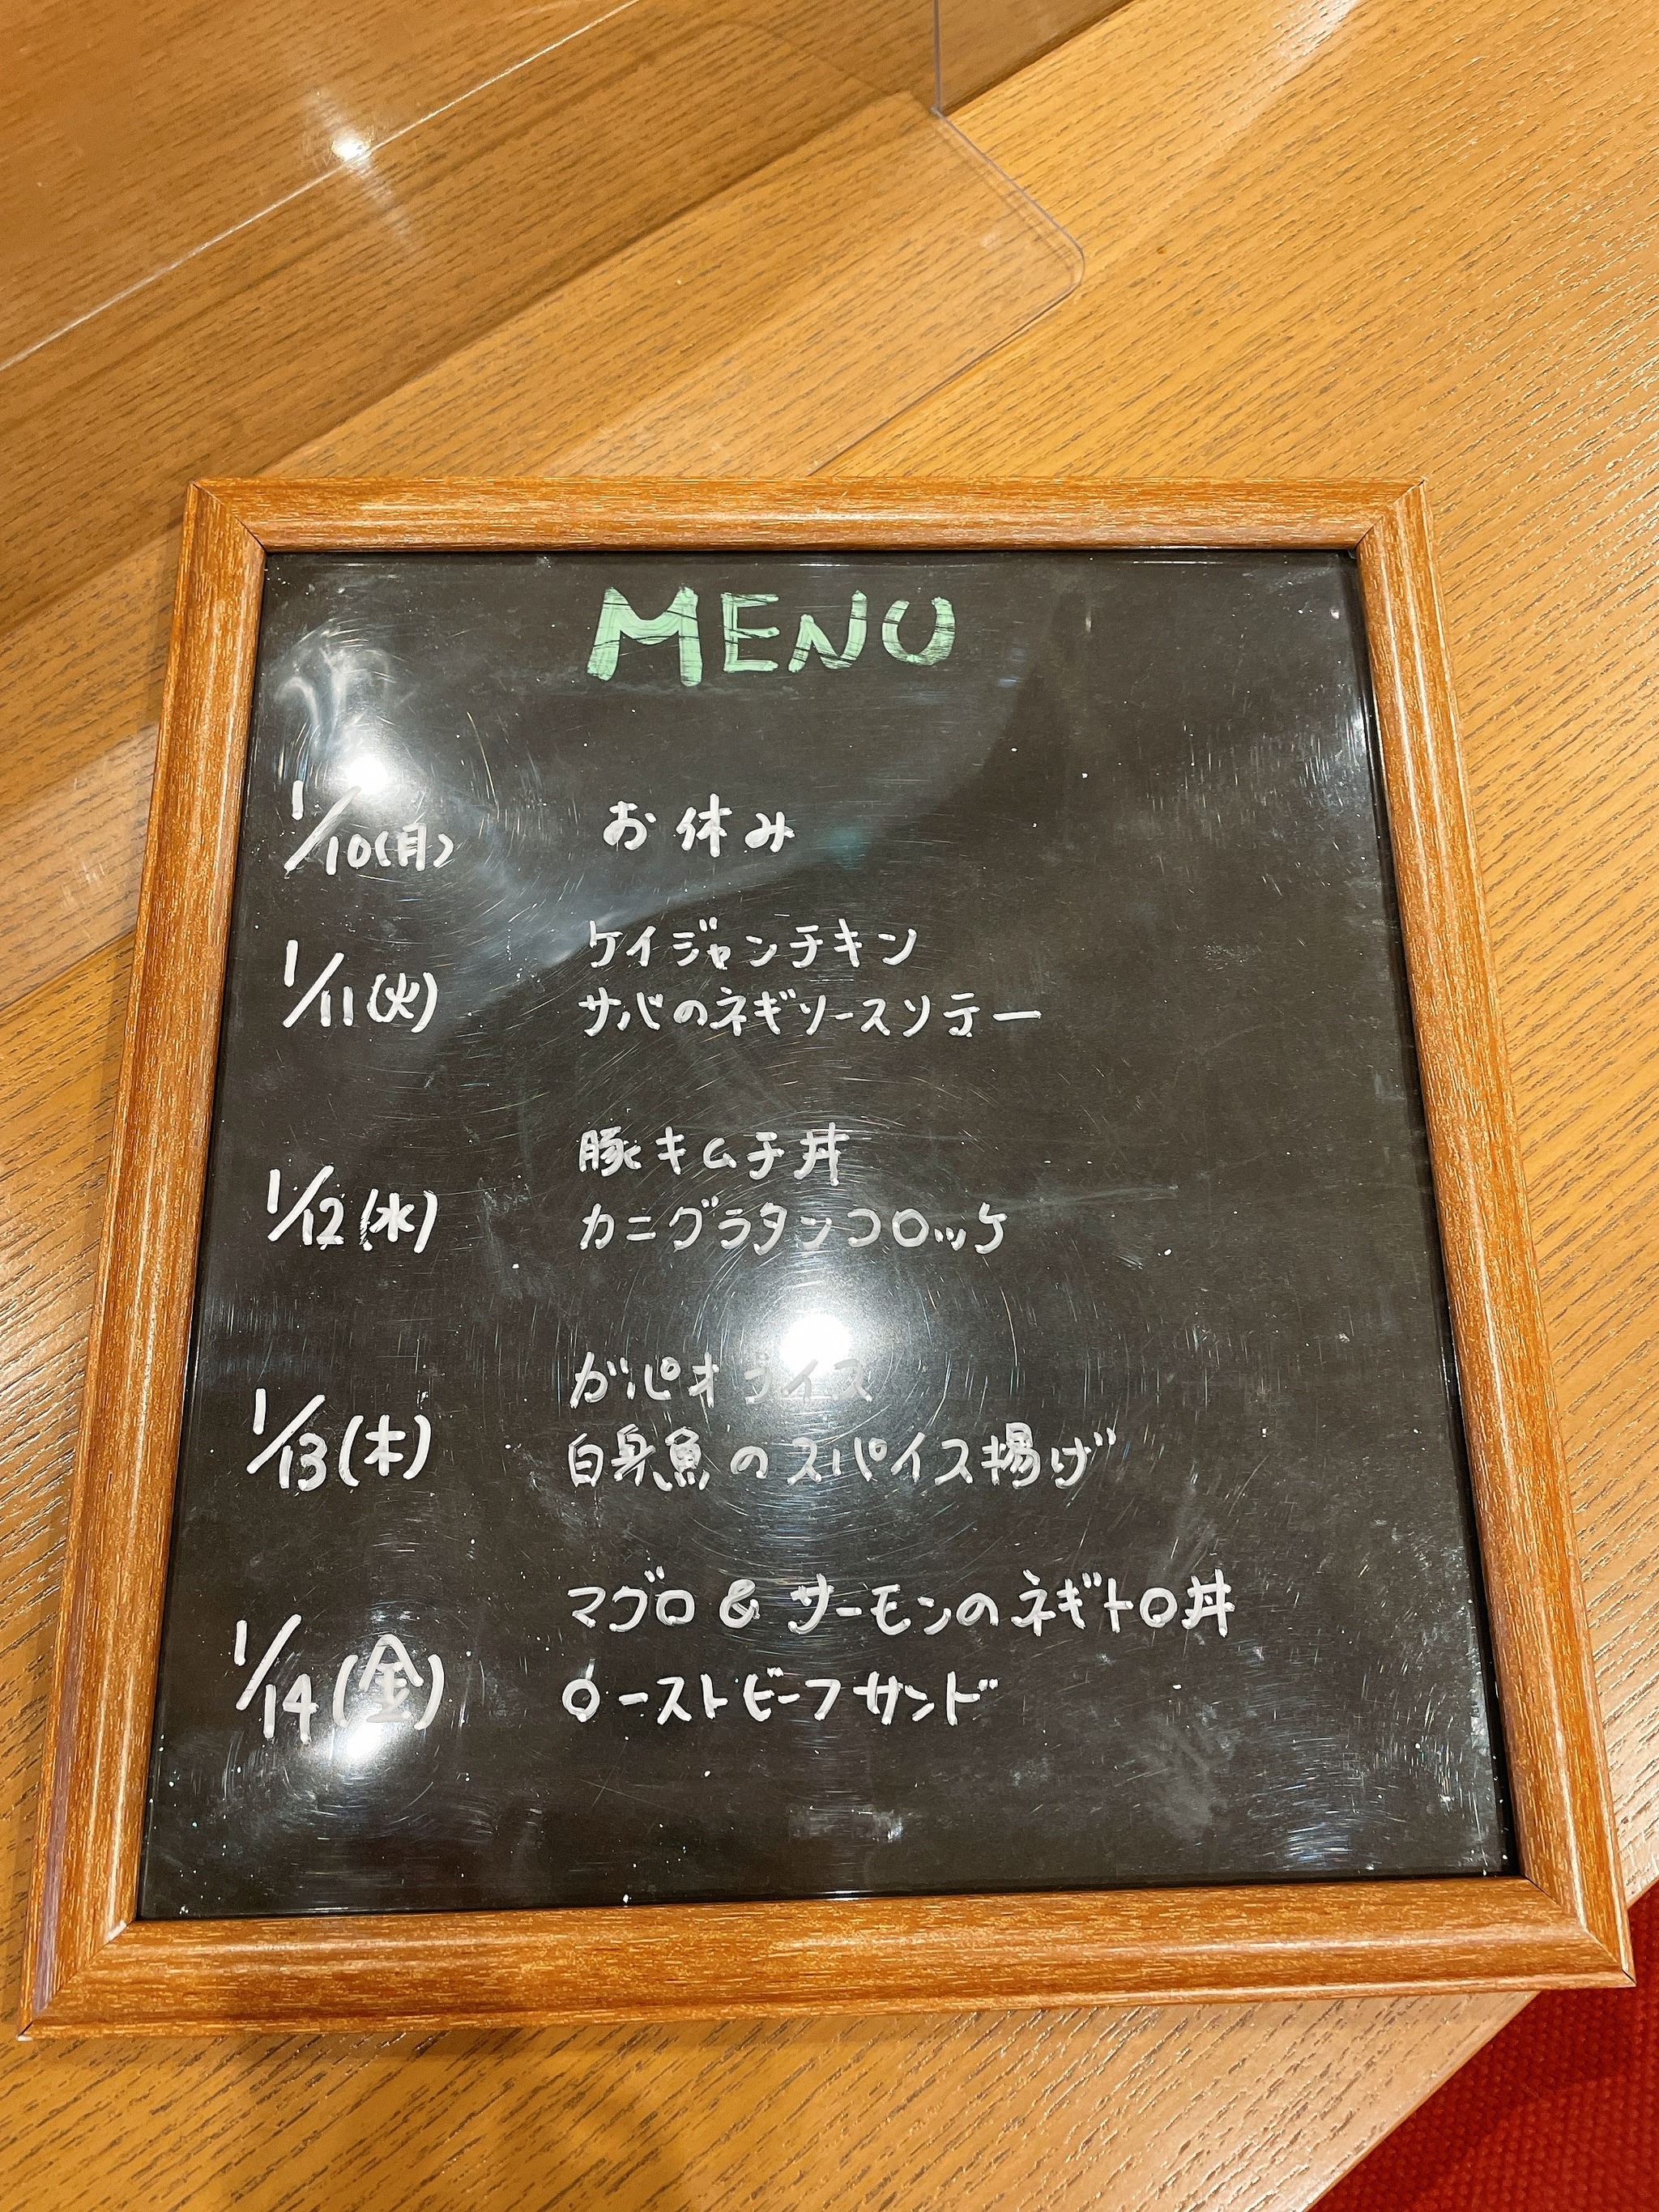 MENU
1/10(月) お休み
1/11(火) ケイジャンチキン
サバのネギソースソテー
1/12(水) 豚キムチ丼
カニグラタンコロッケ
1/13(木) ガパオライス
白身魚のスパイス揚げ
1/14(金) マグロ&サーモンのネギトロ丼
ローストビーフサンド